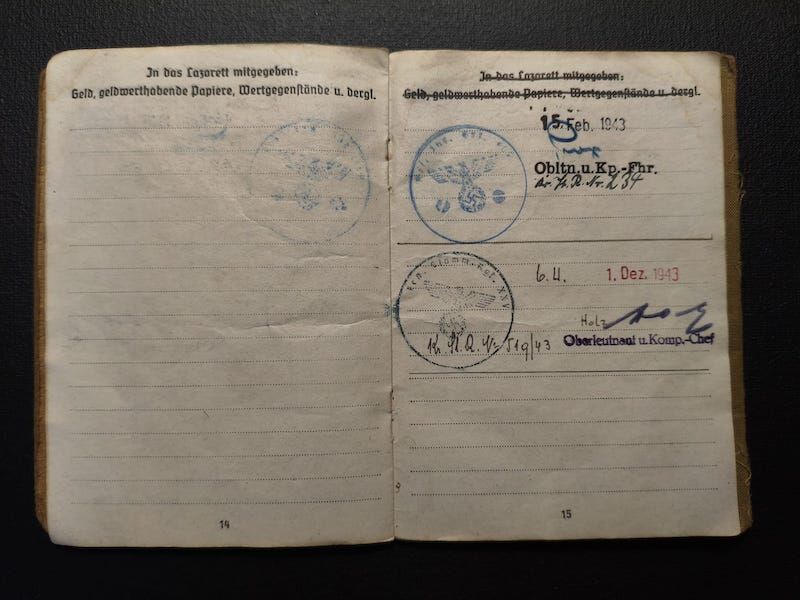 In das Lazarett mitgegeben:
Geld, geldwerthabende Papiere, Wertgegenstände u. dergl.
14
In das Lazarett mitgegeben:
Geld, geldwerthabende Papiere, Wertgegenstände u. dergl.
15. Feb. 1943
Obltn. u. Kp.-Fhr.
Nr. 234
1. Dez. 1943
Holz
Oberleutnant u. Komp.-Chef
519/43
15